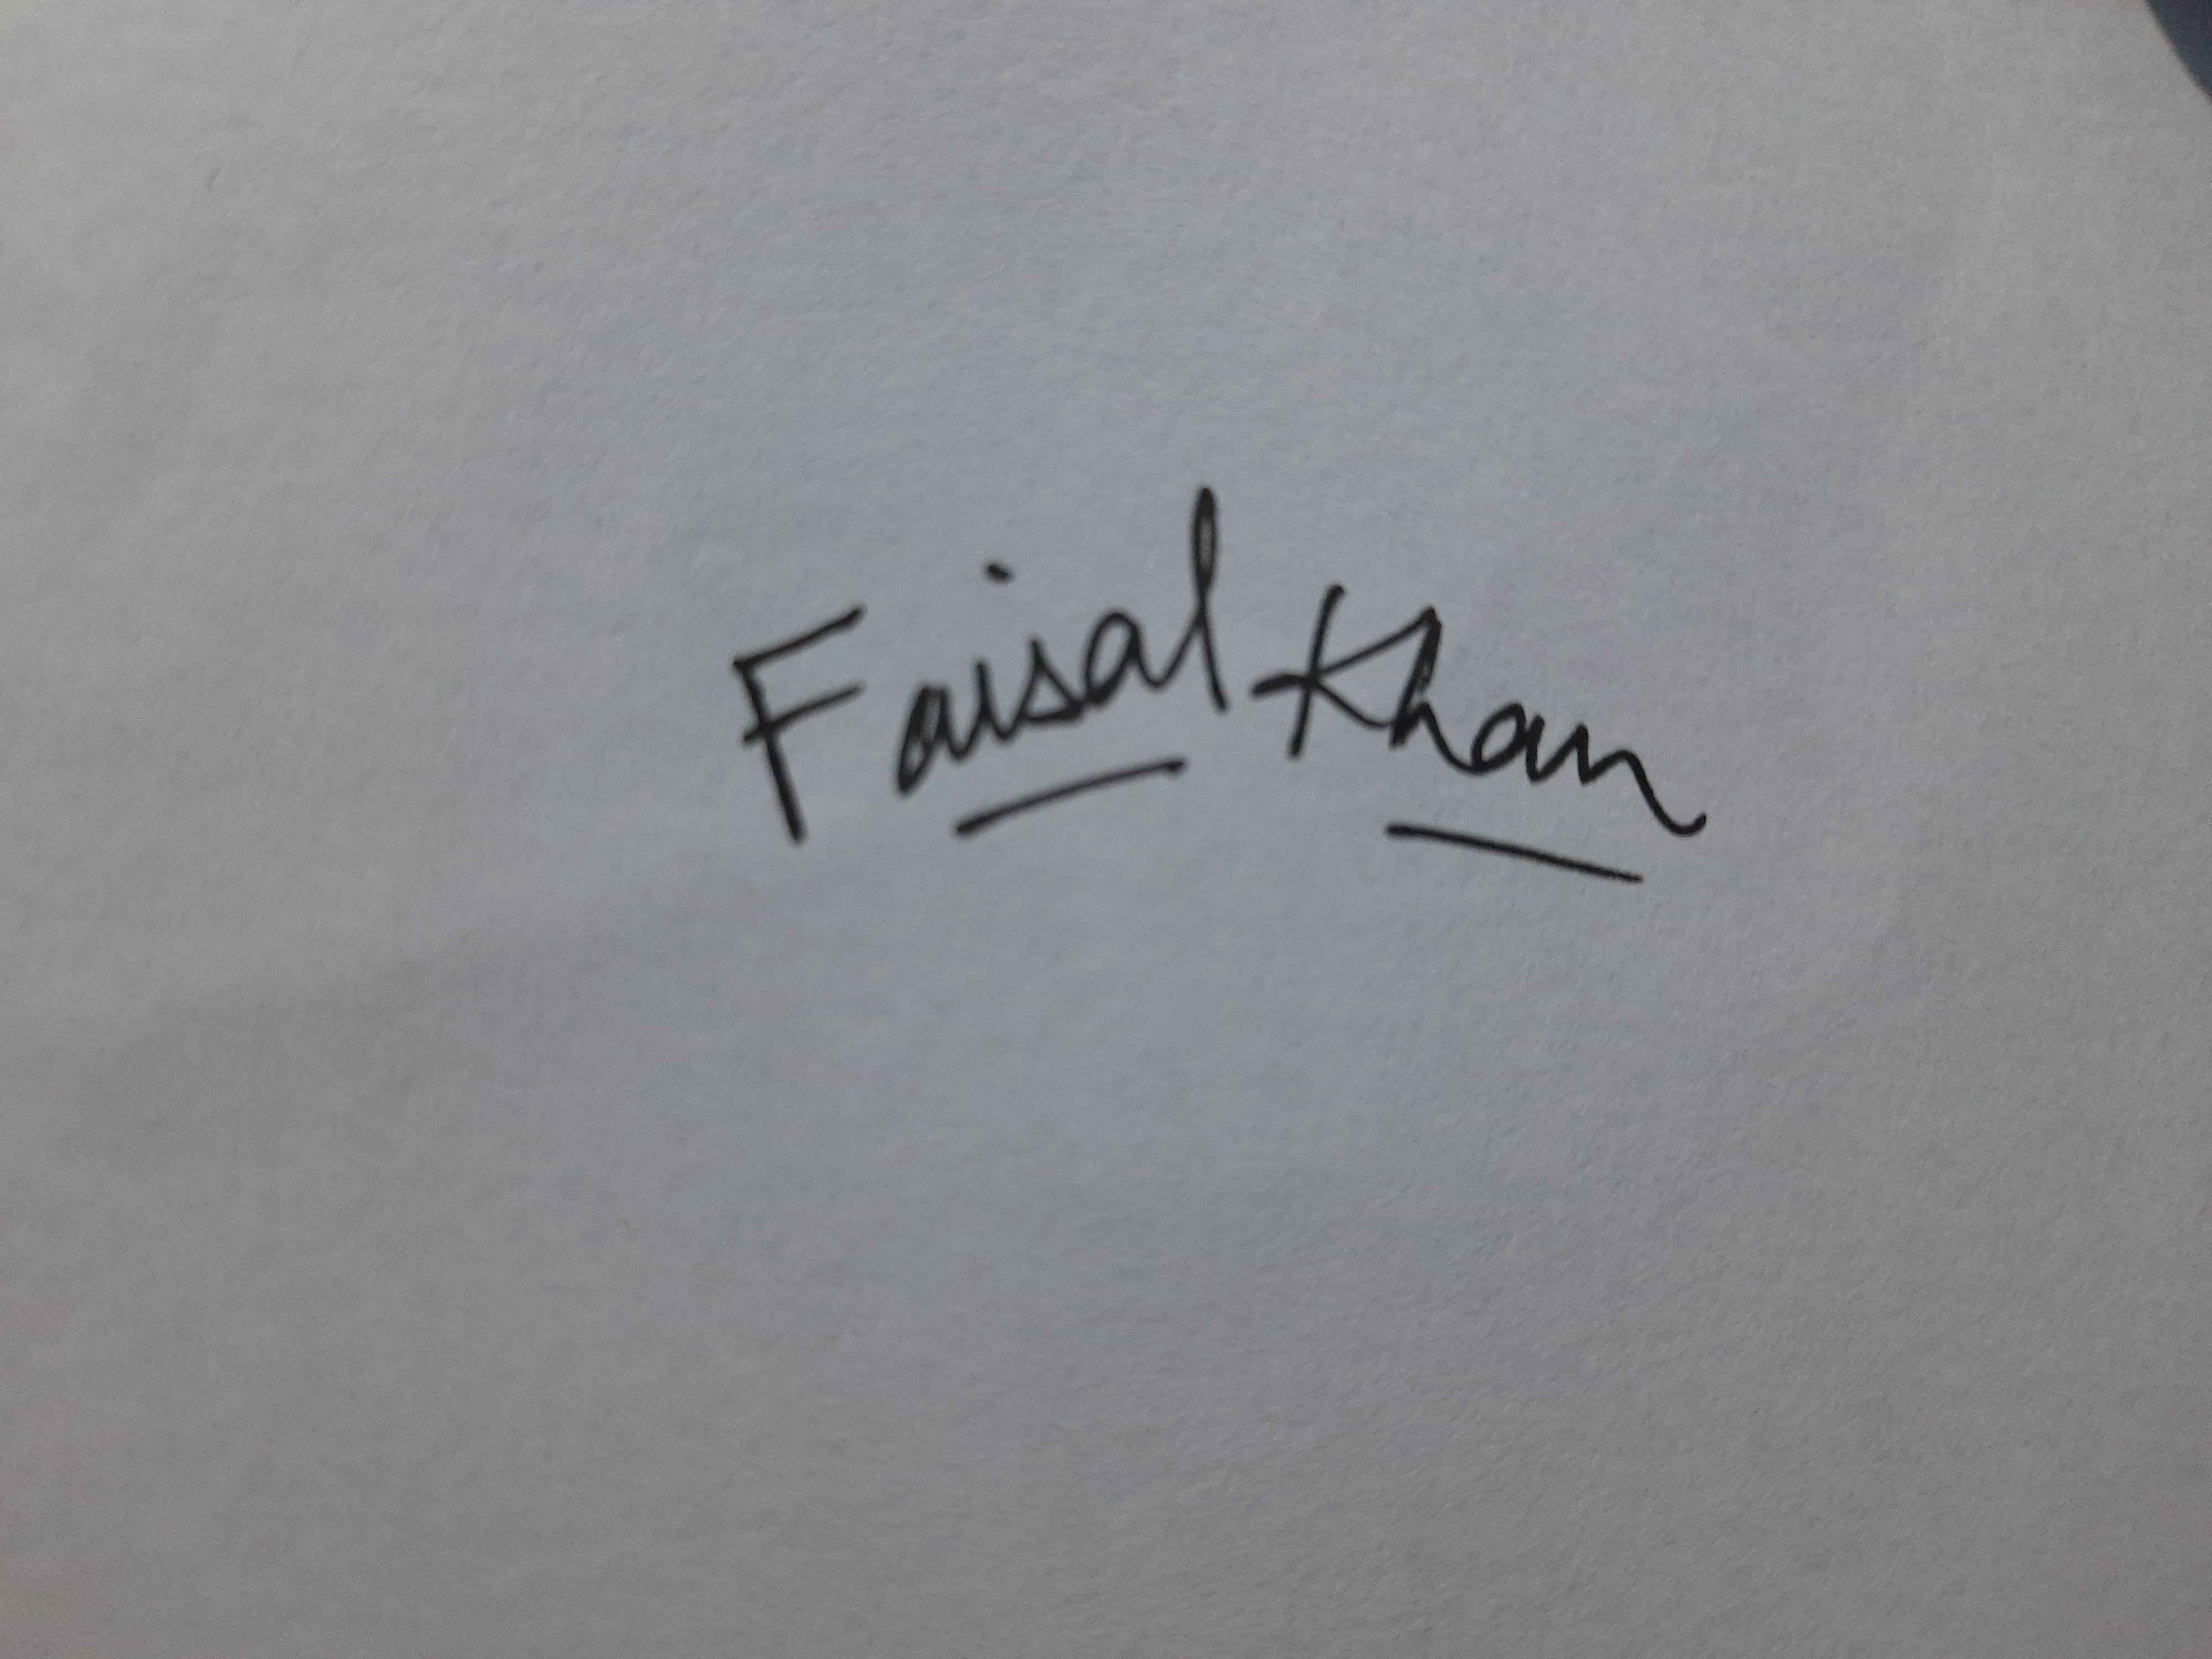 Faisal Khan